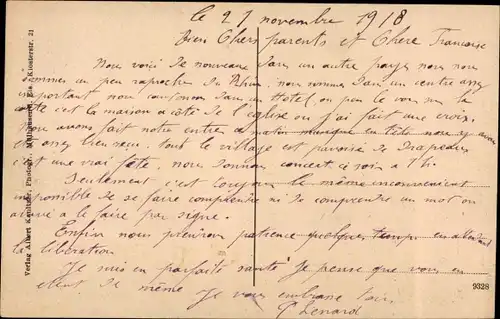 le 21 novembre 1918
Bien Chers parents et Chere Francoise
Nous voici de nouveau dans un autre pays nous nous
sommes un peu raproché du Rhin. nous sommes dans un centre assez
important nous cantonons dans un Hotel, on peu le voir sur la
carte c'est la maison a côté de l'eglise ou j'ai fait une croix.
Nous avons fait notre entrée ce matin musique en tête nous
assez bien recu. tout le village est pavoisé de drapeaux
c'est une vrai fête, nous donnons concert ce soir a h.
Seulement c'est toujours le même inconvenient
impossible de se faire comprendre ni de comprendre un mot on
arrive a le faire par signe.
Enfin nous prenons patience quelques temps en attendant
la liberation
Je suis en parfaite santé je pense que vous en
etent de même Je vous embrasse tous
Lenard
Verlag Albert Photogr. Klosterstr. 31
9328